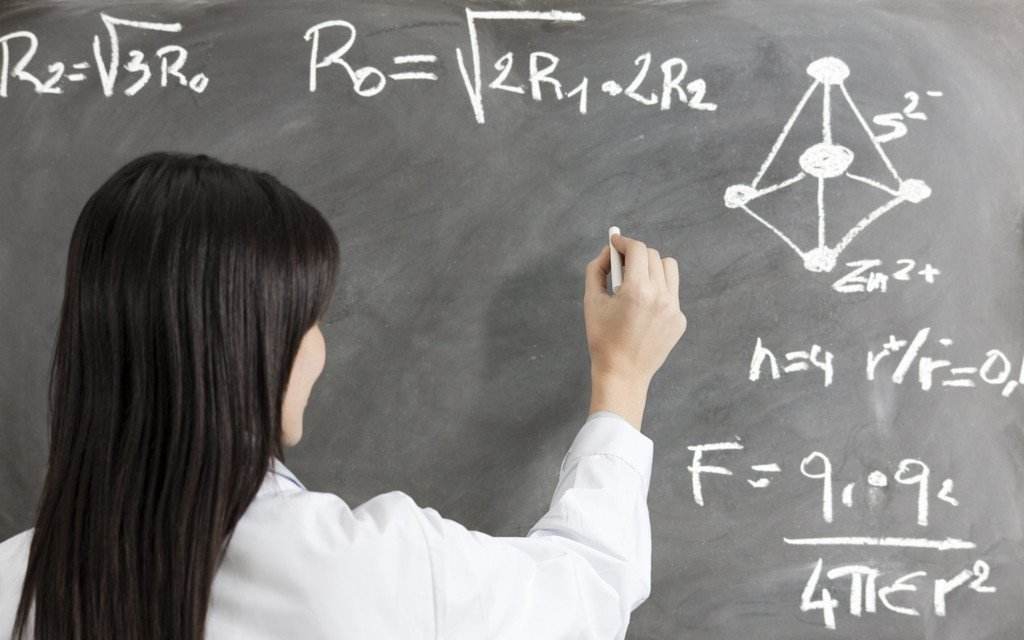 R₂=√3R₀
R₀=√2R₁·2R₂
S²⁻
Zn²⁺
n=4 r⁺/r⁻=0,
F = q₁·q₂
4πϵr²